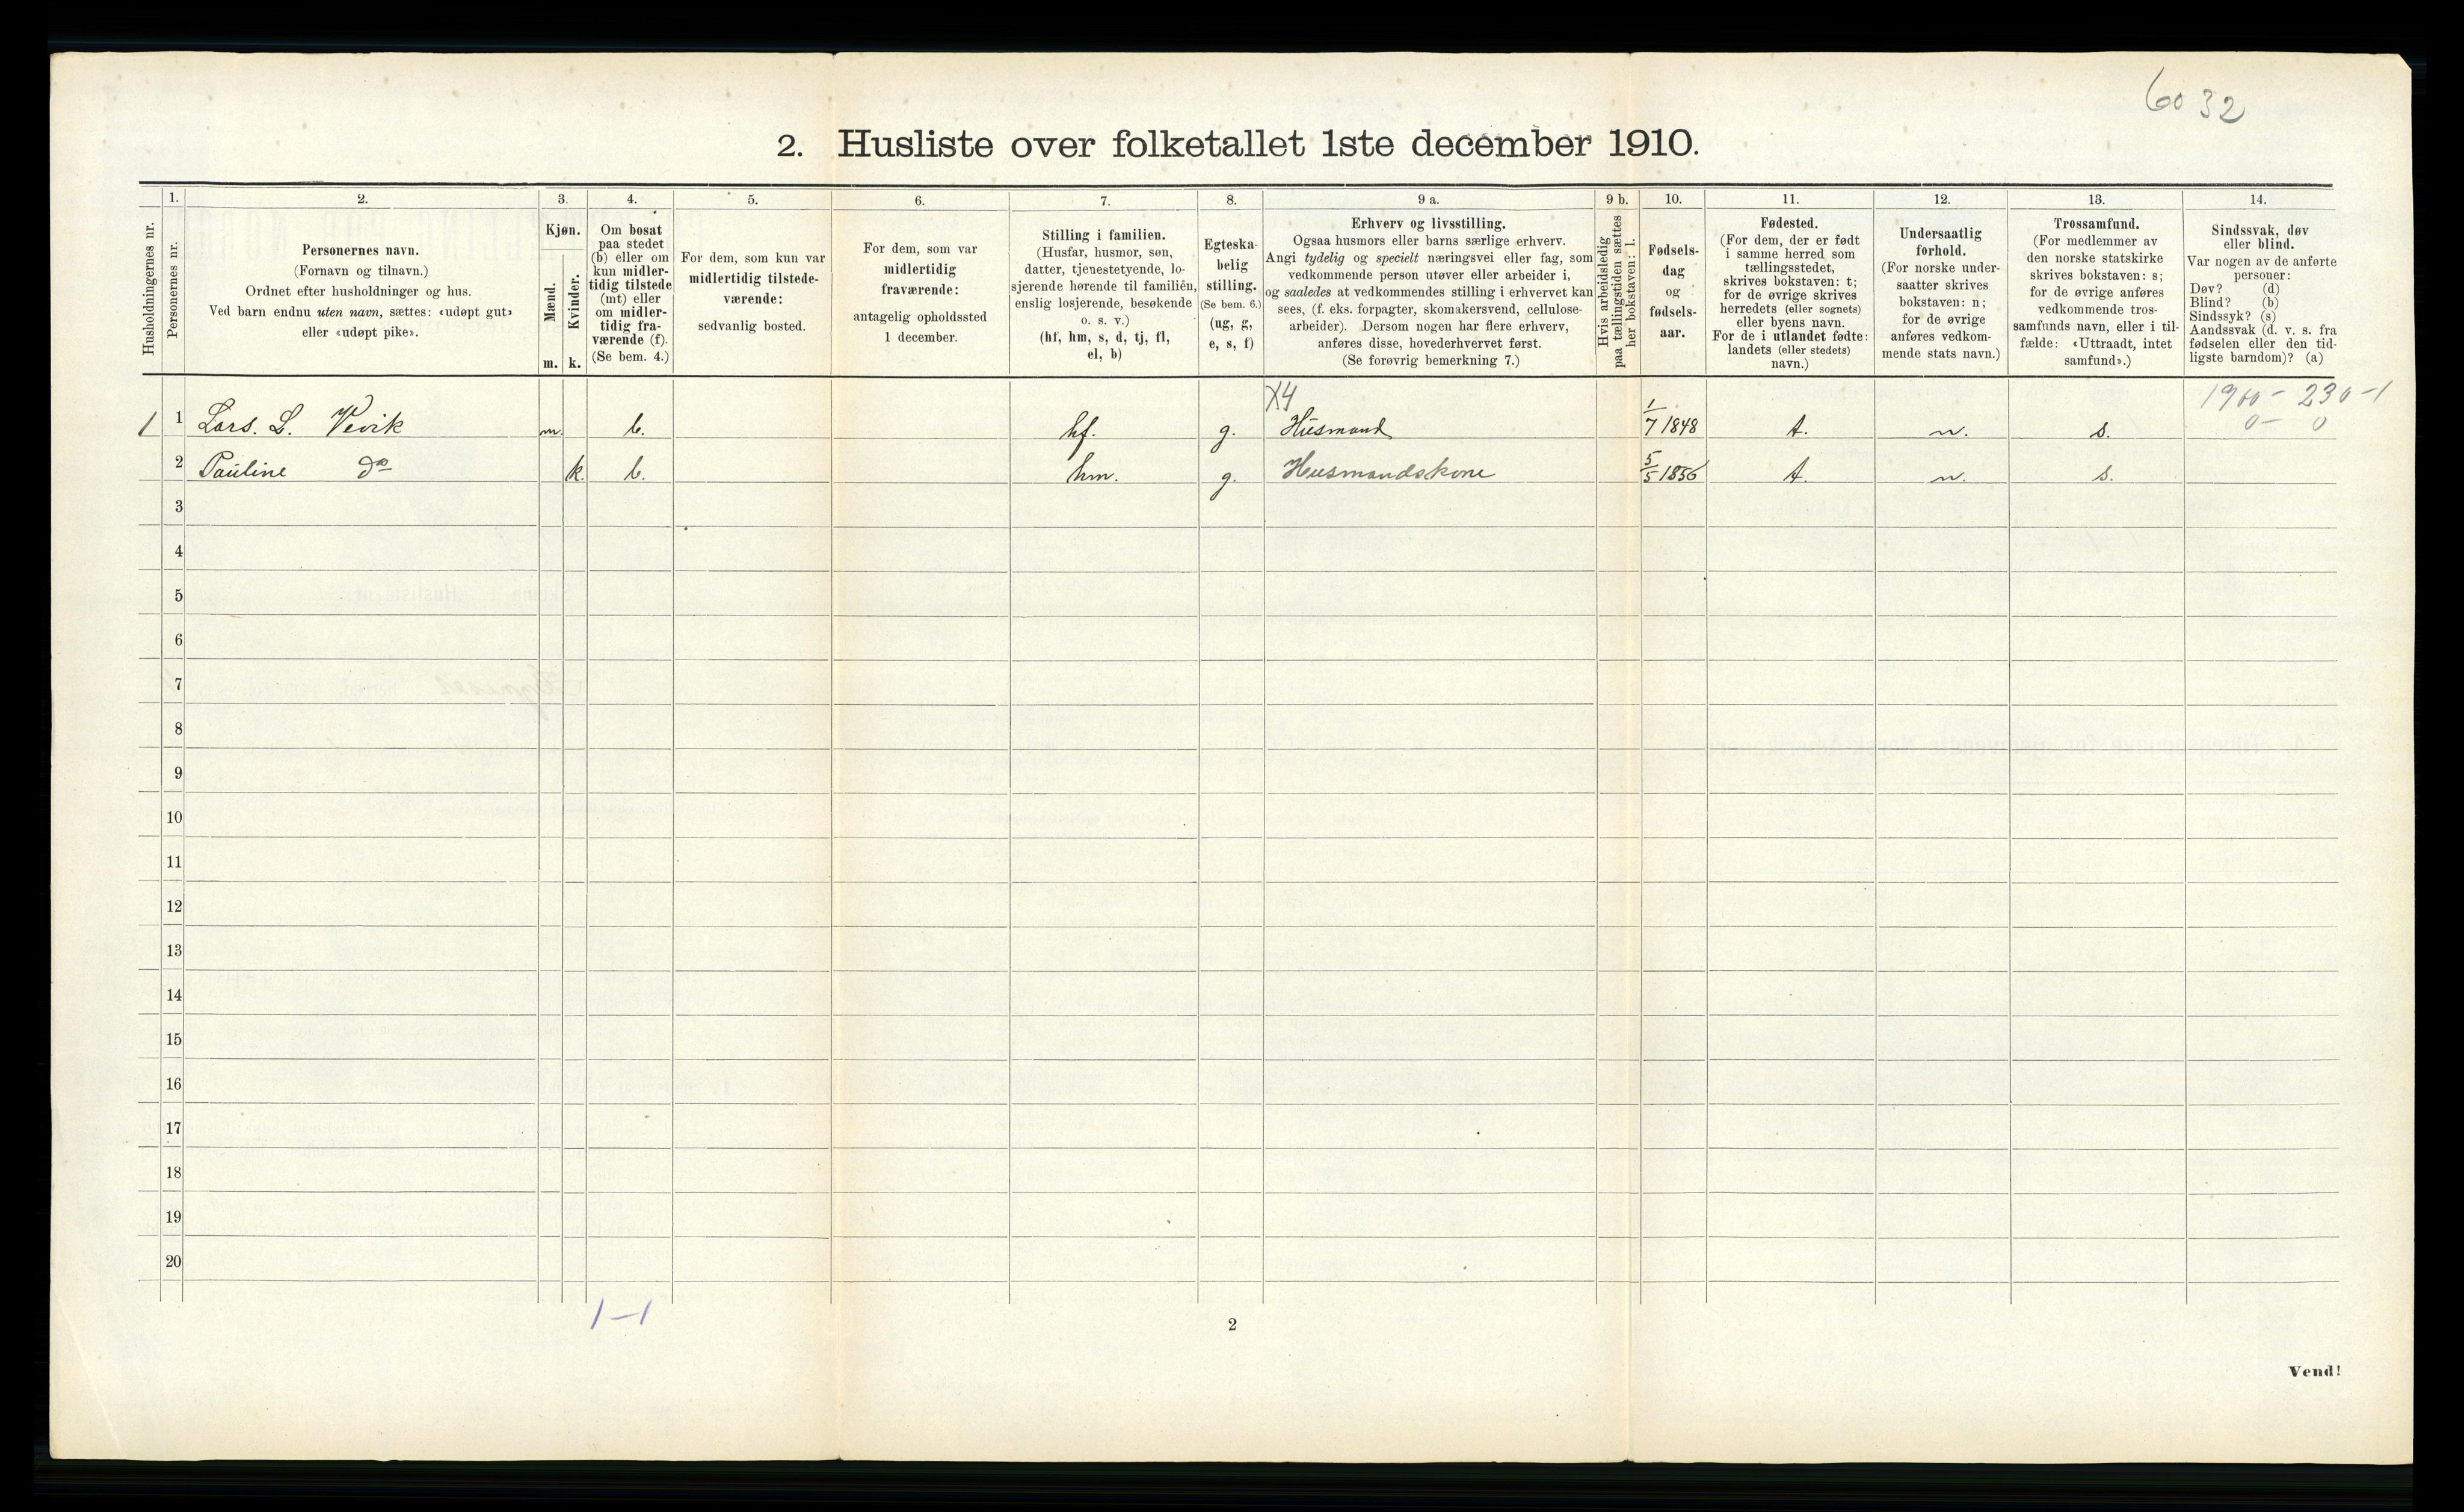 6032
2. Husliste over folketallet 1ste december 1910.
Husholdningernes nr.
1.
Personernes nr.
2.
Personernes navn.
(Fornavn og tilnavn.)
Ordnet efter husholdninger og hus.
Ved barn endnu uten navn, sættes: «udøpt gut»
eller «udøpt pike».
3.
Kjøn.
Mænd.
Kvinder.
m. k.
4.
Om bosat
paa stedet
(b) eller om
kun midler-
tidig tilstede
(mt) eller
om midler-
tidig fra-
værende (f).
(Se bem. 4.)
5.
For dem, som kun var
midlertidig tilstede-
værende:
sedvanlig bosted.
6.
For dem, som var
midlertidig
fraværende:
antagelig opholdssted
1 december.
7.
Stilling i familien.
(Husfar, husmor, søn,
datter, tjenestetyende, lo-
sjerende hørende til familien,
enslig losjerende, besøkende
o. s. v.)
(hf, hm, s, d, tj, fl,
el, b)
8.
Egteska-
belig
stilling.
(Se bem. 6.)
(ug, g,
e, s, f)
9 a.
Erhverv og livsstilling.
Ogsaa husmors eller barns særlige erhverv.
Angi tydelig og specielt næringsvei eller fag, som
vedkommende person utøver eller arbeider i,
og saaledes at vedkommendes stilling i erhvervet kan
sees, (f. eks. forpagter, skomakersvend, cellulose-
arbeider). Dersom nogen har flere erhverv,
anføres disse, hovederhvervet først.
(Se forøvrig bemerkning 7.)
9 b.
Hvis arbeidsledig
paa tællingstiden sættes
her bokstaven: l.
10.
Fødsels-
dag
og
fødsels-
aar.
11.
Fødested.
(For dem, der er født
i samme herred som
tællingsstedet,
skrives bokstaven: t;
for de øvrige skrives
herredets (eller sognets)
eller byens navn.
For de i utlandet fødte:
landets (eller stedets)
navn.)
12.
Undersaatlig
forhold.
(For norske under-
saatter skrives
bokstaven: n;
for de øvrige
anføres vedkom-
mende stats navn.)
13.
Trossamfund.
(For medlemmer av
den norske statskirke
skrives bokstaven: s;
for de øvrige anføres
vedkommende tros-
samfunds navn, eller i til-
fælde: «Uttraadt, intet
samfund».)
14.
Sindssvak, døv
eller blind.
Var nogen av de anførte
personer:
Døv? (d)
Blind? (b)
Sindssyk? (s)
Aandssvak (d. v. s. fra
fødselen eller den tid-
ligste barndom)? (a)
X4
1900 - 230 - 1
0 - 0
1 1 Lars. L. Vevik m. b. hf. g. Husmand 1/7 1848 t. n. s.
2 Pauline do k. b. hm. g. Husmandskone 5/5 1856 t. n. s.
3
4
5
6
7
8
9
10
11
12
13
14
15
16
17
18
19
20
1-1
2
Vend!